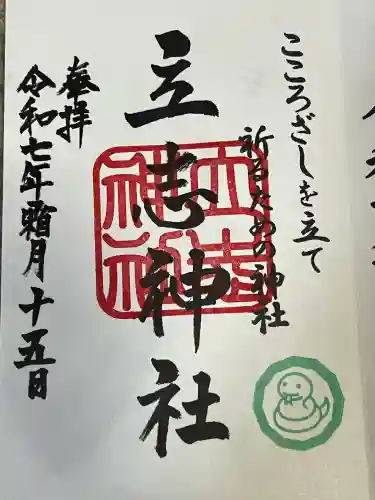 こころざしを立て
祈るための神社
立志神社
立志神社
奉拝
令和七年霜月十五日